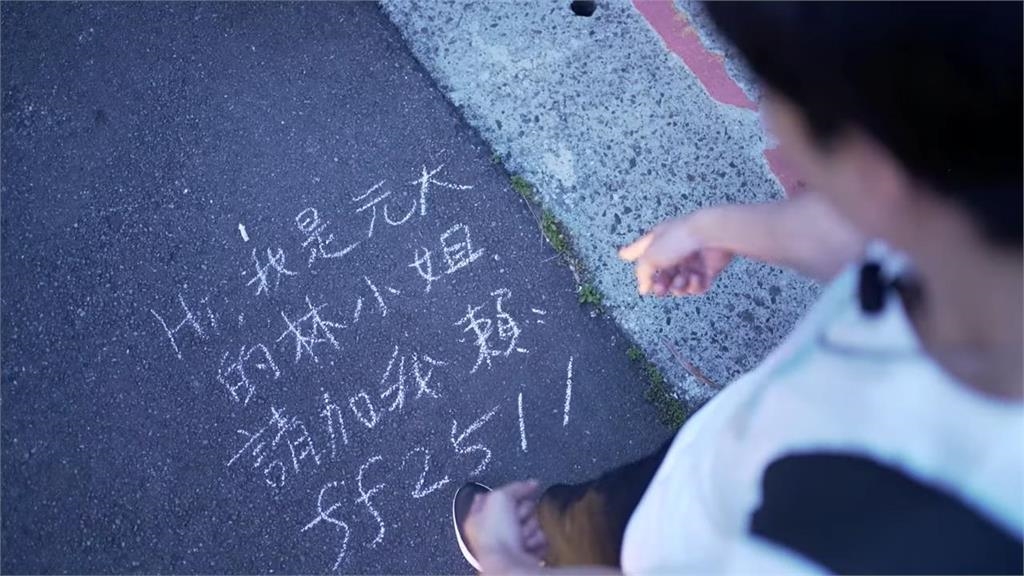 Hi, 我是元大
的林小姐.
請加我賴:
ff2511